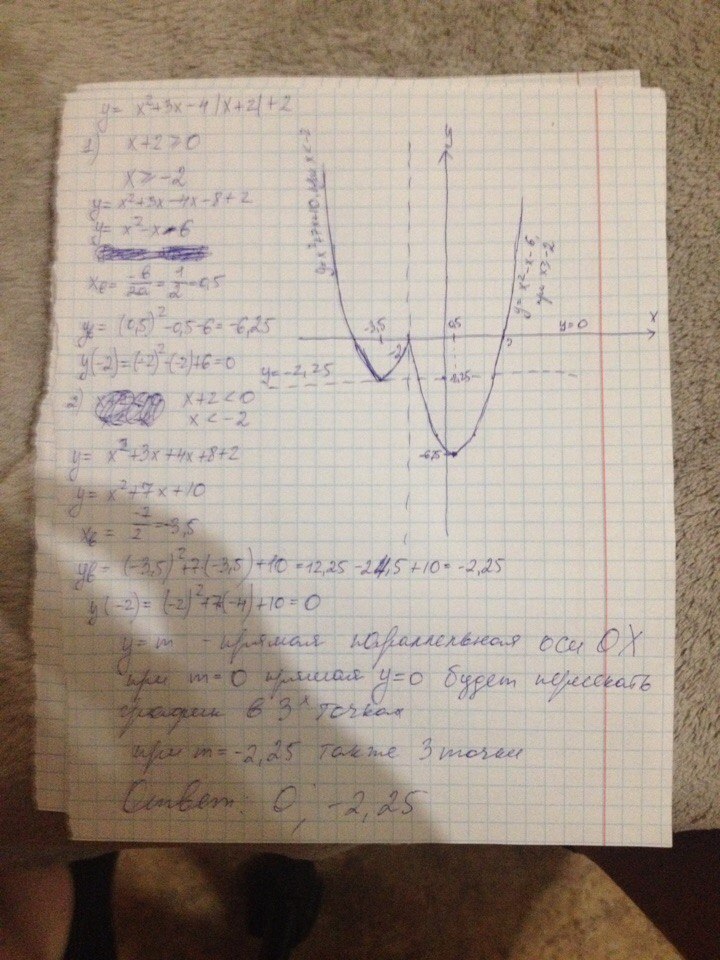 y= x²+3x-4|x+2|+2
1) x+2≥0
x≥-2
y= x²+3x-4x-8+2
y= x²-x-6
xв= -в/2а = 1/2 = 0,5
yв= (0,5)²-0,5-6=-6,25
y(-2)=(-2)²-(-2)+6=0
2) x+2<0
x<-2
y= x²+3x+4x+8+2
y= x²+7x+10
xв= -7/2 =-3,5
yв= (-3,5)²+7(-3,5)+10=12,25-24,5+10=-2,25
y(-2)= (-2)²+7(-4)+10=0
y=m - прямая параллельная оси OX
при m=0 прямая y=0 будет пересекать
график в 3х точках
при m=-2,25 также 3 точки
Ответ: 0; -2,25
y=x²+7x+10, при x<-2
y=x²-x-6, при x≥-2
x
y=0
-3,5
-2
0,5
3
y=-2,25
-2,25
-6,25